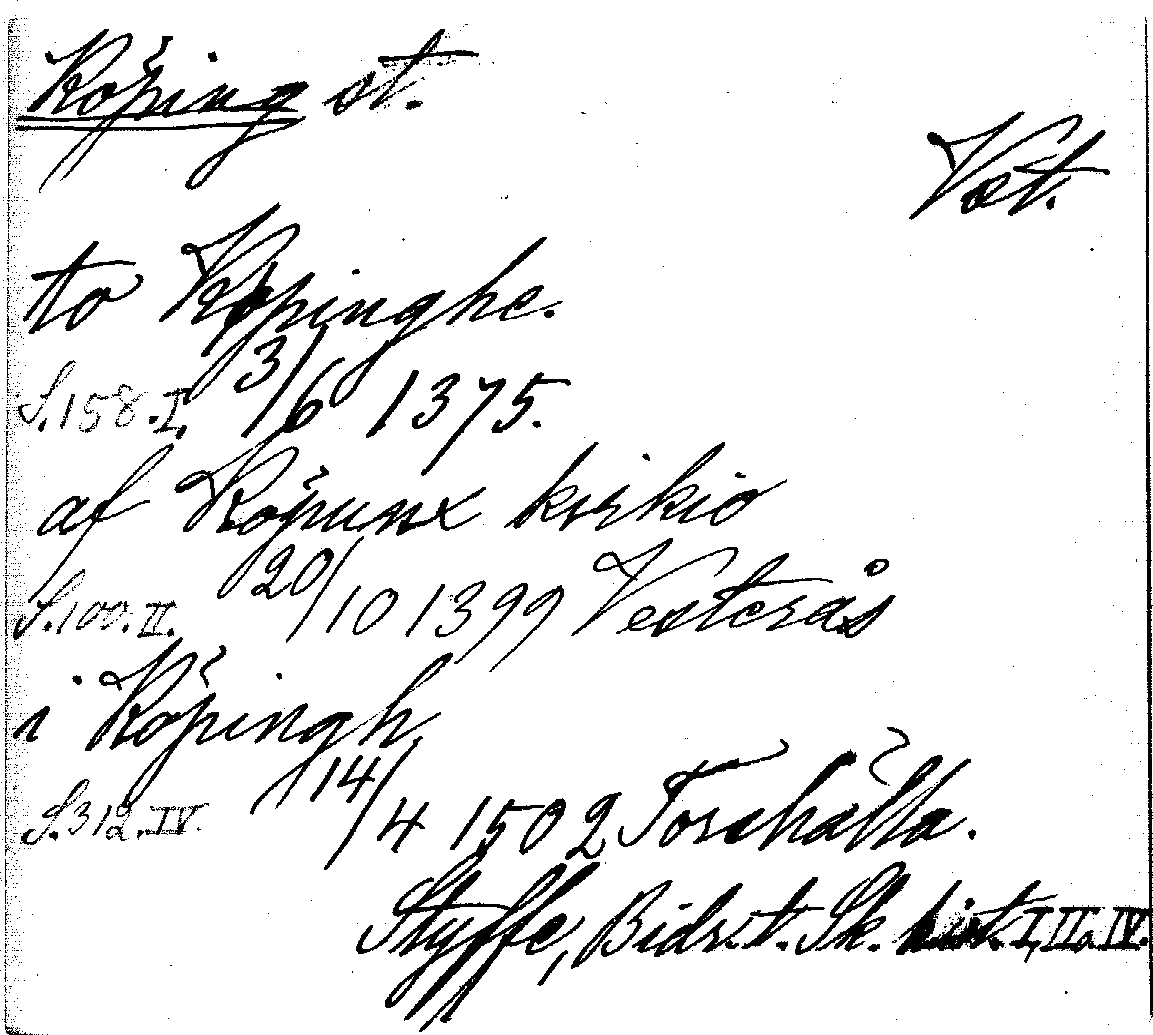 Köping st.
Vst.
to Køpinghe.
S.158.I. 3/6 1375.
af Köpunx kirkio
S.100.II. 20/10 1399 Vesterås
i Köpingh
S.312.IV. 14/4 1502 Torshälla.
Styffe, Bidr. t. Sk. hist. I, II, IV.